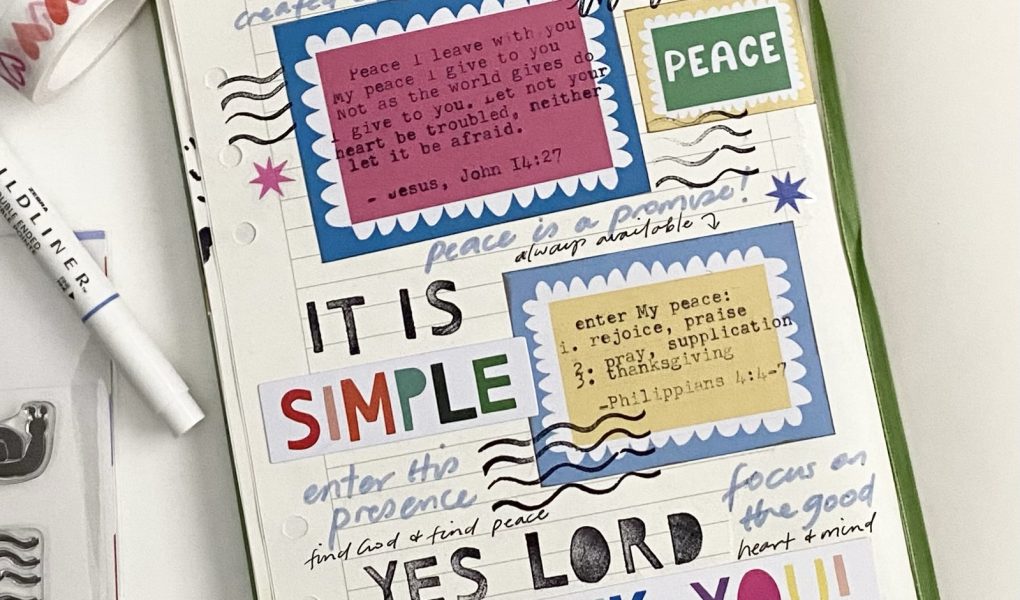 created
Peace I leave with you
My peace I give to you
Not as the world gives do
I give to you. Let not your
heart be troubled, neither
let it be afraid.
- Jesus, John 14:27
PEACE
peace is a promise!
always available
IT IS
SIMPLE
enter My peace:
1. rejoice, praise
2. pray, supplication
3. thanksgiving
-Philippians 4:4-7
enter His
presence
find God & find peace
focus on
the good
heart & mind
YES LORD
YOU!
ILDLINER
DOUBLE ENDED